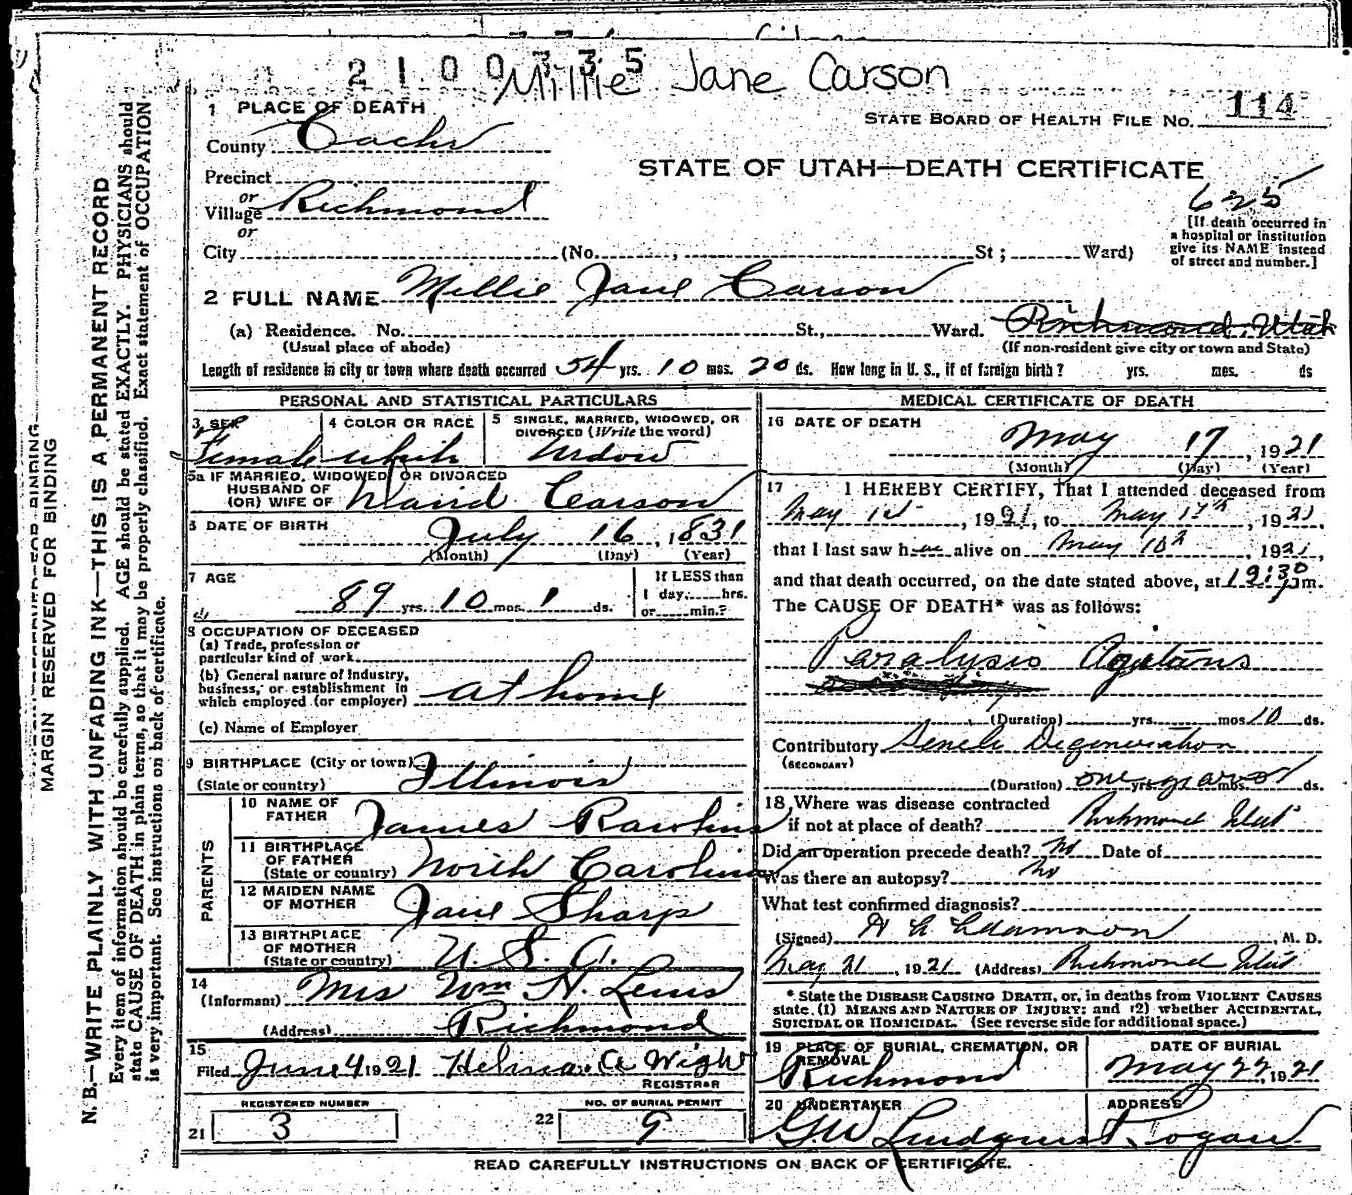 2100335
Millie Jane Carson
1 PLACE OF DEATH
STATE BOARD OF HEALTH FILE No. 114
County Cache
STATE OF UTAH—DEATH CERTIFICATE
Precinct
or
Village Richmond
625
or
[If death occurred in
a hospital or institution
give its NAME instead
of street and number.]
City (No. , St ; Ward)
2 FULL NAME Millie Jane Carson
(a) Residence. No. St., Ward. Richmond, Utah
(Usual place of abode) (If non-resident give city or town and State)
Length of residence in city or town where death occurred 54 yrs. 10 mos. 20 ds. How long in U. S., if of foreign birth? yrs. mos. ds
PERSONAL AND STATISTICAL PARTICULARS
3 SEX
Female
4 COLOR OR RACE
white
5 SINGLE, MARRIED, WIDOWED, OR
DIVORCED (Write the word)
Widow
5a IF MARRIED, WIDOWED, OR DIVORCED
HUSBAND OF
(OR) WIFE OF David Carson
6 DATE OF BIRTH
July 16, 1831
(Month) (Day) (Year)
7 AGE
89 yrs. 10 mos. 1 ds.
If LESS than
1 day, hrs.
or min.?
8 OCCUPATION OF DECEASED
(a) Trade, profession or
particular kind of work
(b) General nature of industry,
business, or establishment in
which employed (or employer) at home
(c) Name of Employer
9 BIRTHPLACE (City or town)
(State or country) Illinois
PARENTS
10 NAME OF
FATHER James Rawlins
11 BIRTHPLACE
OF FATHER
(State or country) North Carolina
12 MAIDEN NAME
OF MOTHER Jane Sharp
13 BIRTHPLACE
OF MOTHER
(State or country) U. S. A.
14
(Informant) Mrs Wm H. Lewis
(Address) Richmond
15
Filed June 4 1921 A Wight
REGISTRAR
REGISTERED NUMBER
21 3
NO. OF BURIAL PERMIT
22 9
MEDICAL CERTIFICATE OF DEATH
16 DATE OF DEATH
May 17, 1921
(Month) (Day) (Year)
17 I HEREBY CERTIFY, That I attended deceased from
May 1st, 1921, to May 17th, 1921,
that I last saw her alive on May 10th, 1921,
and that death occurred, on the date stated above, at pm.
The CAUSE OF DEATH* was as follows:
Paralysis Agitans
(Duration) yrs. mos 10 ds.
Contributory Senile Degeneration
(SECONDARY)
(Duration) one yrs. mos. ds.
18 Where was disease contracted
if not at place of death? Richmond Utah
Did an operation precede death? No Date of
Was there an autopsy? No
What test confirmed diagnosis?
(Signed) Adamson M. D.
May 21, 1921 (Address) Richmond Utah
* State the DISEASE CAUSING DEATH, or, in deaths from VIOLENT CAUSES
state (1) MEANS AND NATURE OF INJURY; and (2) whether ACCIDENTAL,
SUICIDAL OR HOMICIDAL. (See reverse side for additional space.)
19 PLACE OF BURIAL, CREMATION, OR
REMOVAL
Richmond
DATE OF BURIAL
May 22, 1921
20 UNDERTAKER
G.W Lindquist
ADDRESS
Logan
READ CAREFULLY INSTRUCTIONS ON BACK OF CERTIFICATE.
MARGIN RESERVED FOR BINDING
N. B.—WRITE PLAINLY WITH UNFADING INK—THIS IS A PERMANENT RECORD
Every item of information should be carefully supplied. AGE should be stated EXACTLY. PHYSICIANS should
state CAUSE OF DEATH in plain terms, so that it may be properly classified. Exact statement of OCCUPATION
is very important. See instructions on back of certificate.